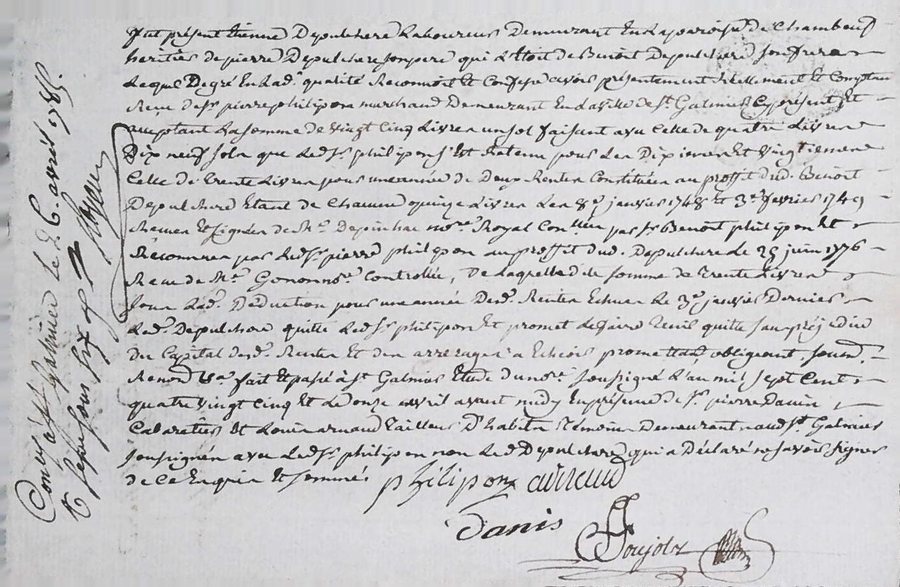 fut présent Etienne Depulchere Laboureur Demeurant En la paroise de Chambeuf
héritier de pierre Depulchere son pere qui L'Etoit de Benoit Depulchere son frere
Lequel Degré En lad. qualité Reconnoit et Confesse avoir présentement Réellement Et Comptant
Receu de Sr. pierre philipon marchand Demeurant En la ville de St. Galmier Cy présent Et
acceptant La somme de vingt Cinq Livres un sol faisant avec Celle de quatre Livres
Dix neuf sols que Led. Sr. philipon s'Est Retenu pour Les Dixiemes Et vingtiemes
Celle de Trente Livres pour une année de Deux Rentes Constituées au proffit dud. Benoit
Depulchere Etant de Chacune quinze Livres Les 8e. janvier 1748 et 3e. fevrier 1749
Receues Et signées de Me. Depinhac nore. Royal par Sr. Benoit philipon Et
Reconnues par Led. Sr. pierre philipon au proffit dud. Depulchere Le 25 juin 1776
Receue de Me. Gonon nore. Controllée, De laquelle de. somme de Trente Livres
sous Lad. Déduction pour une année desd. Rentes Echue Le 3e. janvier Dernier
Led. Depulchere quitte Led. Sr. philipon Et promet Le faire Tenir quitte sans préjudice
du Capital desd. Rentes Et des arrerages a Echeoir promettant obligeant, soum.
Renond. &a. fait Et passé à St. Galmier Etude du nore. soussigné L'an mil sept Cent
quatre vingt Cinq Et Le onze avril avant midy En présence de Sr. pierre Danis
Cabaretier Et Louis arnaud Tailleur D'habits Témoins Demeurant aud. St. Galmier
soussignés avec Led. Sr. philipon non Led. Depulchere qui a Déclaré ne savoir signer
de Ce Enquis Et sommé
philipon arnaud
Danis
Soujols
Con.lé à St. Galmier Le 26 avril 1785.